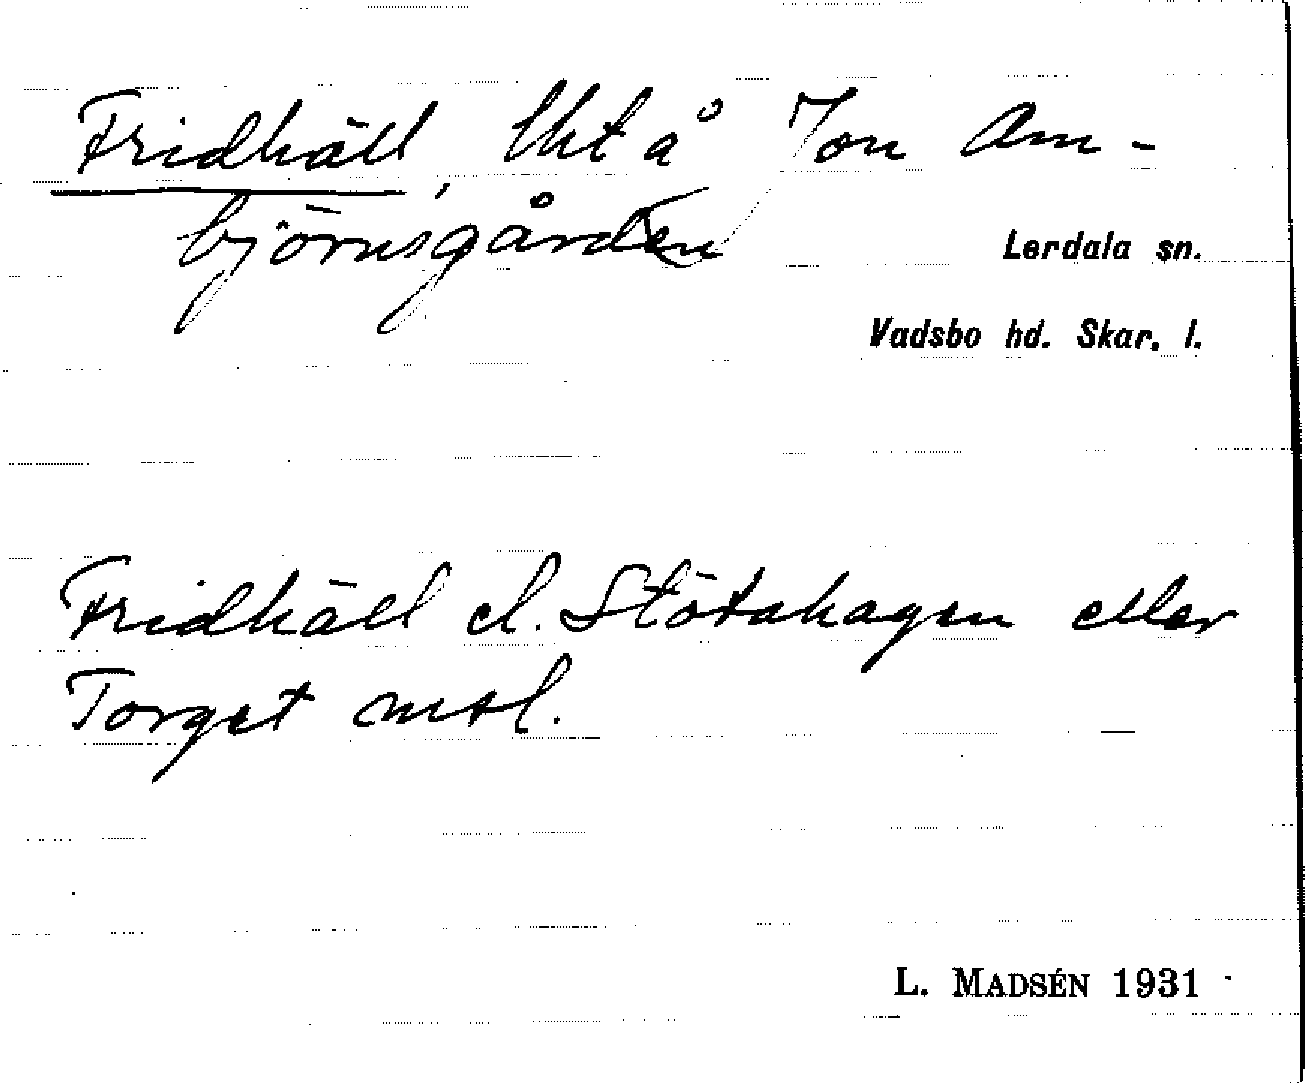 Fridhäll, lht å Jon Am-
björnsgården
Lerdala sn.
Vadsbo hd. Skar. l.
Fridhäll el. Stötahagen eller
Torget mtl.
L. MADSÉN 1931